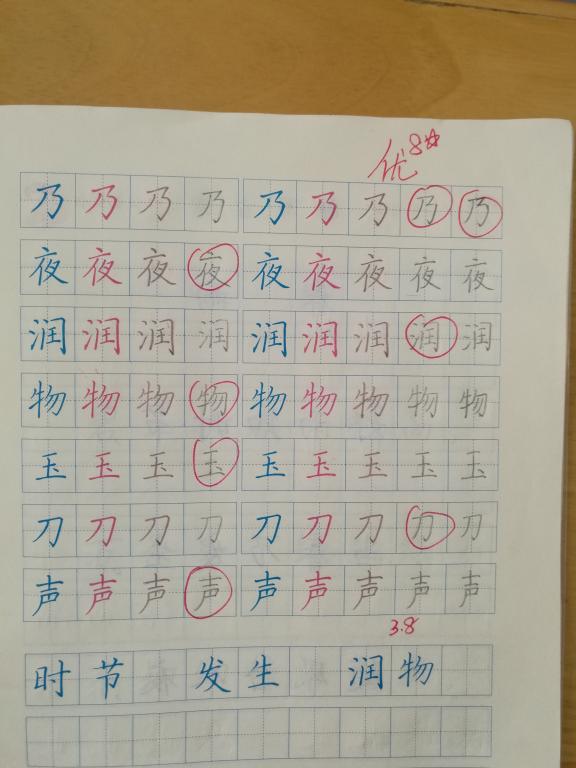 优 8☆
乃乃乃乃 乃乃乃乃乃
夜夜夜夜 夜夜夜夜夜
润润润润 润润润润润
物物物物 物物物物物
玉玉玉玉 玉玉玉玉玉
刀刀刀刀 刀刀刀刀刀
声声声声 声声声声声
3.8
时节 发生 润物